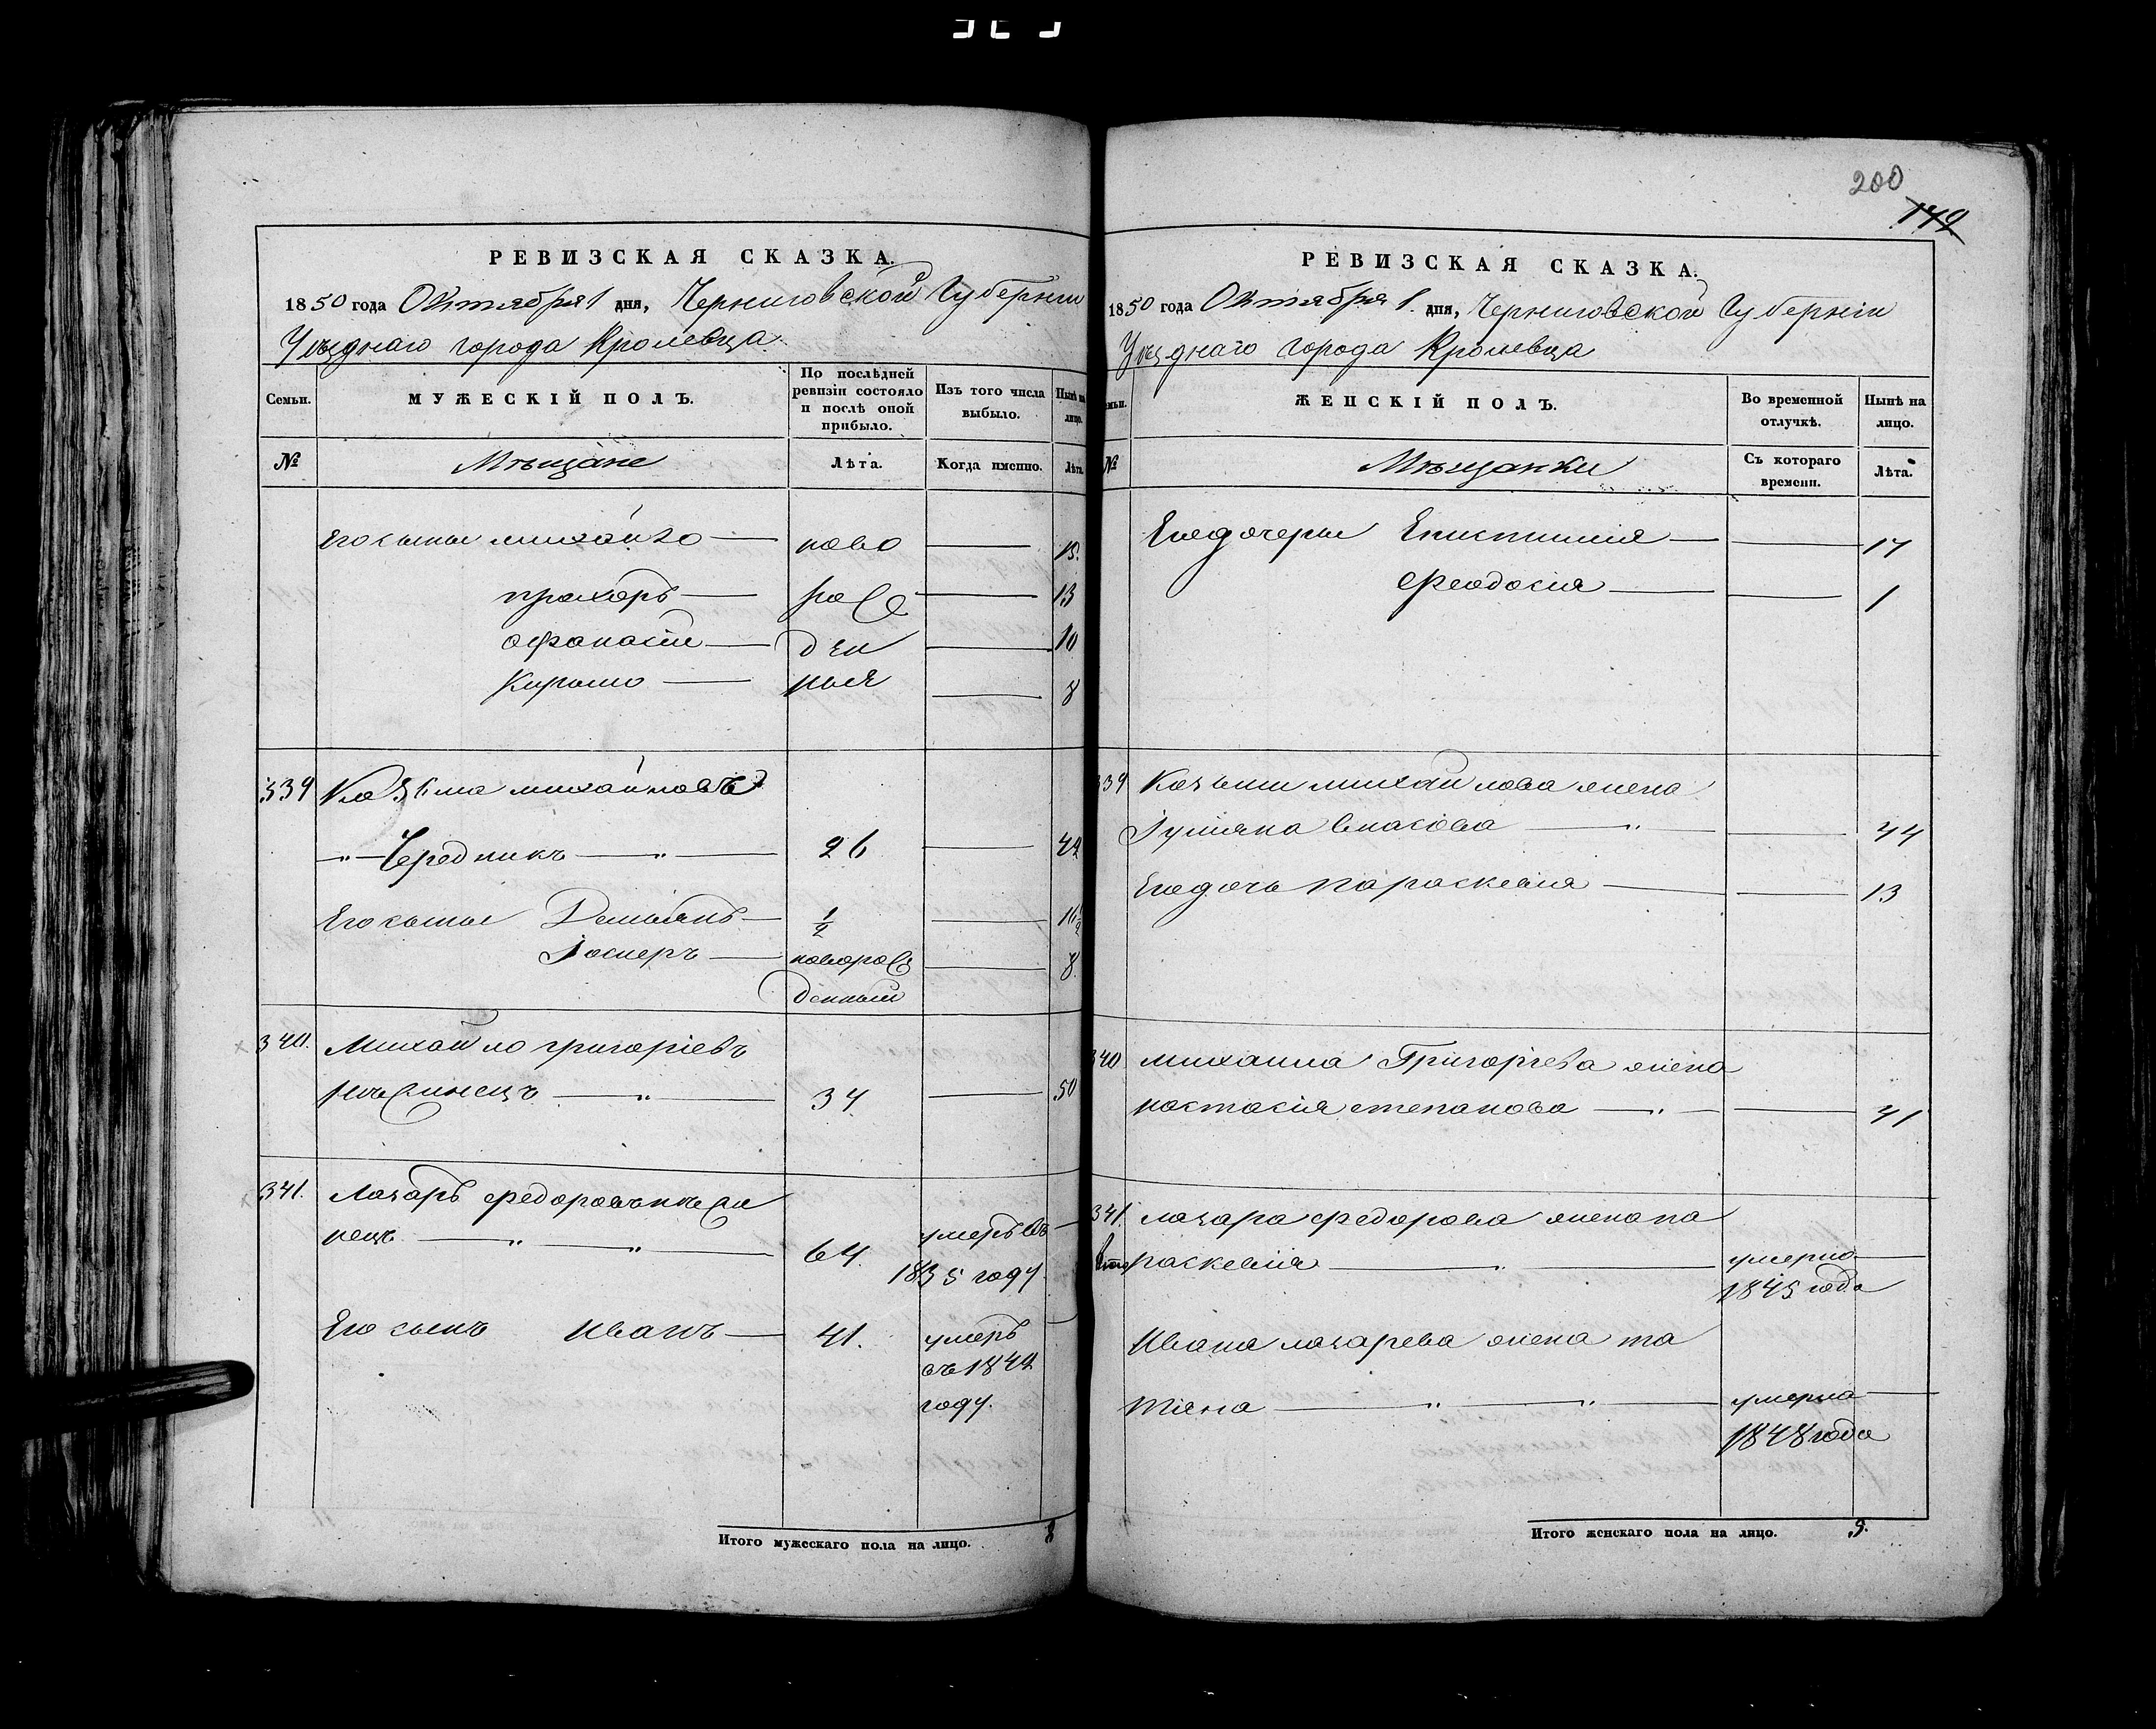 200
149
РЕВИЗСКАЯ СКАЗКА.
1850 года Октября 1 дня, Черниговской Губерніи
Уѣзднаго города Кролевца
Семьи.
МУЖЕСКІЙ ПОЛЪ.
По послѣдней ревизіи состояло и послѣ оной прибыло.
Изъ того числа выбыло.
Нынѣ на лицо.
№
Мѣщане
Лѣта.
Когда именно.
Лѣта
Его сыны михайло — ново — 15.
прохоръ — рож — 13
афанасiй — ден — 10
Кирило — ныя — 8
339 Козьма михайловъ
Чередникъ — 26 — 42
Его сыны Демьянъ — 1/2 — 16 1/2
новорож — 8
денный
340. Михайло григоріевъ
34 — 50
341. Лазарь федоровъ
нецъ — 64. умеръ въ
1835 году
Его сынъ Иванъ — 41. умеръ
въ 1842
году.
Итого мужескаго пола на лицо. 8
РЕВИЗСКАЯ СКАЗКА.
1850 года Октября 1. дня, Черниговской Губерніи
Уѣзднаго города Кролевца
ЖЕНСКІЙ ПОЛЪ.
Во временной отлучкѣ.
Нынѣ на лицо.
№
Мѣщанки
Съ котораго времени.
Лѣта.
Его дочеры Епистимія — 17
Феодосія — 1
339 Козьми михайлова жена
Іуліяна власова — 44
Его дочь параскевія — 13
340 михаила Григоріева жена
настасія степанова — 41
341. лазара федорова жена па
раскевія — умерла
1845 года
Ивана лазарева жена та
тіяна — умерла
1848 года
Итого женскаго пола на лицо. 5.